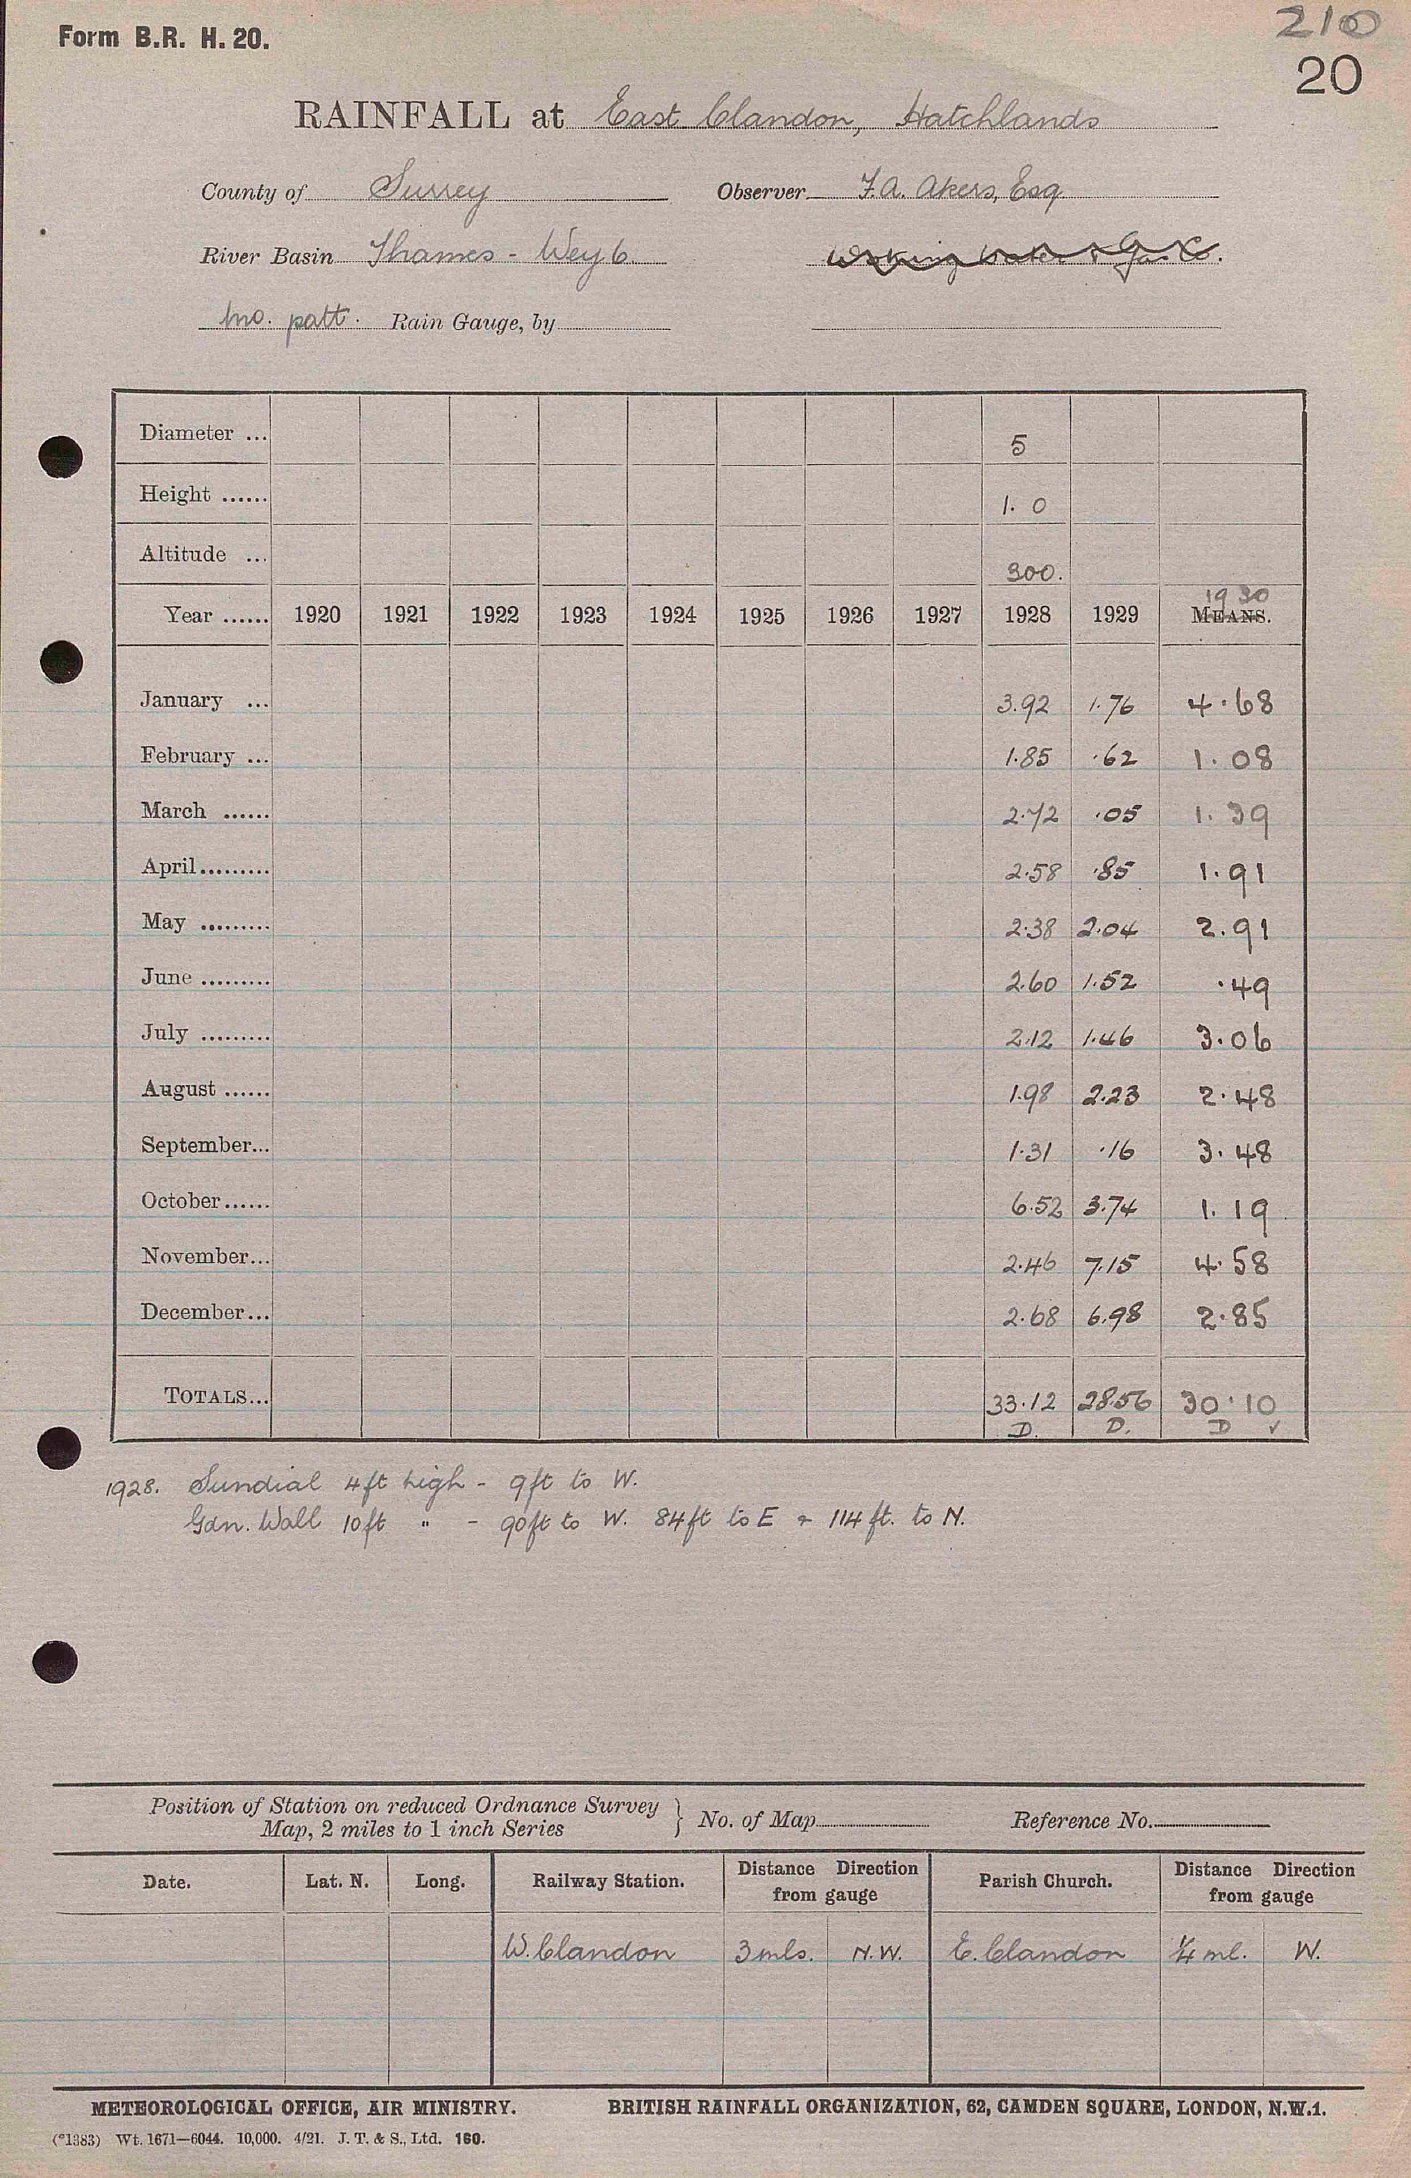 210
Form B.R. H. 20.
20
RAINFALL at East Clandon, Hatchlands
County of Surrey Observer F.A. Akers, Esq
River Basin Thames - Wey 6. Woking Water & Gas Co.
Mo. patt. Rain Gauge, by
Diameter ... 5
Height ...... 1. 0
Altitude ... 300.
1930
Year ...... 1920 1921 1922 1923 1924 1925 1926 1927 1928 1929 MEANS.
January ... 3.92 1.76 4.68
February ... 1.85 .62 1.08
March ...... 2.72 .05 1.39
April......... 2.58 .85 1.91
May ......... 2.38 2.04 2.91
June ......... 2.60 1.52 .49
July ......... 2.12 1.46 3.06
August ...... 1.98 2.23 2.48
September... 1.31 .16 3.48
October...... 6.52 3.74 1.19
November... 2.46 7.15 4.58
December... 2.68 6.98 2.85
TOTALS... 33.12 28.56 30.10
D. D. D ✓
1928. Sundial 4ft high - 9ft to W.
Gdn. Wall 10ft " - 90ft to W. 84ft to E & 114ft. to N.
Position of Station on reduced Ordnance Survey
Map, 2 miles to 1 inch Series } No. of Map Reference No.
Date. Lat. N. Long. Railway Station. Distance Direction from gauge Parish Church. Distance Direction from gauge
W. Clandon 3 mls. N.W. E. Clandon ¼ ml. W.
METEOROLOGICAL OFFICE, AIR MINISTRY. BRITISH RAINFALL ORGANIZATION, 62, CAMDEN SQUARE, LONDON, N.W.1.
(*1383) Wt. 1671—6044. 10,000. 4/21. J. T. & S., Ltd. 160.